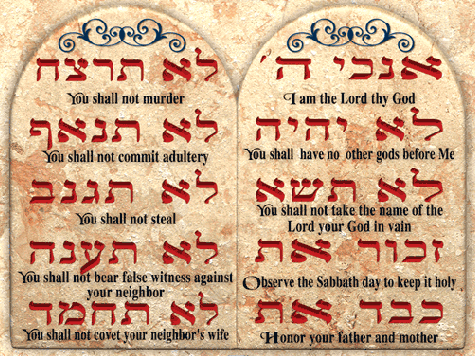 אנכי ה׳
I am the Lord thy God
לא יהיה
You shall have no other gods before Me
לא תשא
You shall not take the name of the
Lord your God in vain
זכור את
Observe the Sabbath day to keep it holy
כבד את
Honor your father and mother
לא תרצח
You shall not murder
לא תנאף
You shall not commit adultery
לא תגנב
You shall not steal
לא תענה
You shall not bear false witness against
your neighbor
לא תחמד
You shall not covet your neighbor's wife